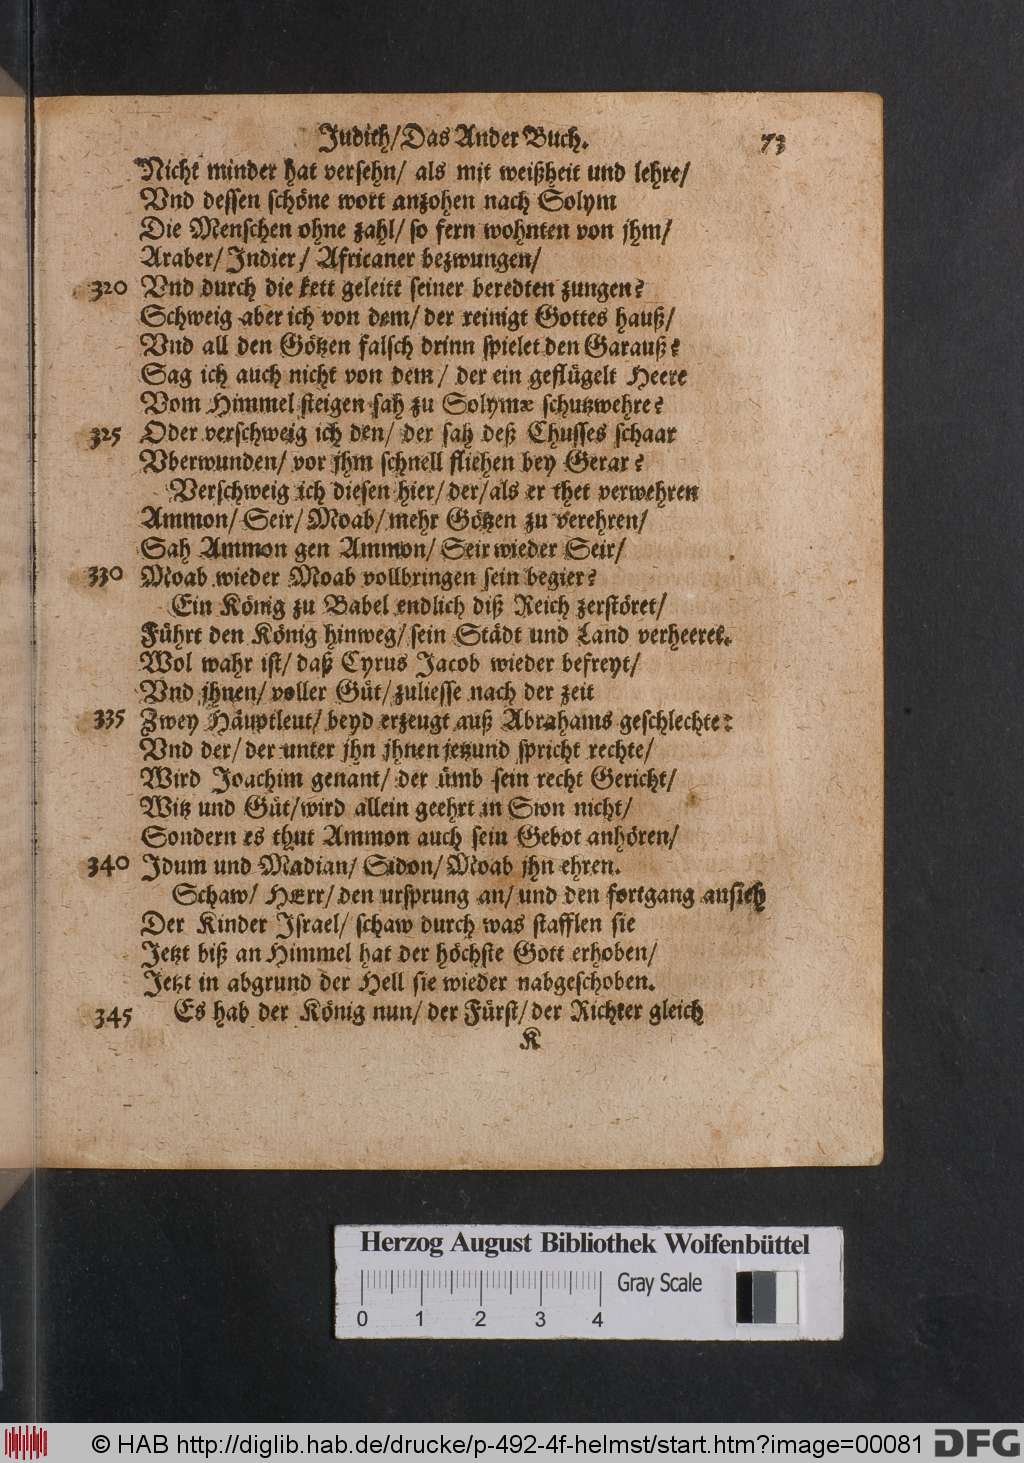 Judith/Das Ander Buch. 73
Nicht minder hat versehn/ als mit weißheit und lehre/
Vnd dessen schöne wort anzohen nach Solym
Die Menschen ohne zahl/ so fern wohnten von jhm/
Araber/ Indier/ Africaner bezwungen/
320 Vnd durch die kett geleitt seiner beredten zungen?
Schweig aber ich von dem/ der reinigt Gottes hauß/
Vnd all den Götzen falsch drinn spielet den Garauß?
Sag ich auch nicht von dem/ der ein geflügelt Heere
Vom Himmel steigen sah zu Solymæ schutzwehre?
325 Oder verschweig ich den/ der sah deß Chusses schaar
Vberwunden/ vor jhm schnell fliehen bey Gerar?
Verschweig ich diesen hier/ der/ als er thet verwehren
Ammon/ Seir/ Moab/ mehr Götzen zu verehren/
Sah Ammon gen Ammon/ Seir wieder Seir/
330 Moab wieder Moab vollbringen sein begier?
Ein König zu Babel endlich diß Reich zerstöret/
Führt den König hinweg/ sein Städt und Land verheeret.
Wol wahr ist/ daß Cyrus Jacob wieder befreyt/
Vnd jhnen/ voller Güt/ zuliesse nach der zeit
335 Zwey Häuptleut/ beyd erzeugt auß Abrahams geschlechte:
Vnd der/ der unter jhn jhnen jetzund spricht rechte/
Wird Joachim genant/ der ümb sein recht Gericht/
Witz und Güt/ wird allein geehrt in Sion nicht/
Sondern es thut Ammon auch sein Gebot anhören/
340 Idum und Madian/ Sidon/ Moab jhn ehren.
Schaw/ HErr/ den ursprung an/ und den fortgang ansieh
Der Kinder Israel/ schaw durch was stafflen sie
Jetzt biß an Himmel hat der höchste Gott erhoben/
Jetzt in abgrund der Hell sie wieder nabgeschoben.
345 Es hab der König nun/ der Fürst/ der Richter gleich
K
Herzog August Bibliothek Wolfenbüttel
Gray Scale
0 1 2 3 4
© HAB http://diglib.hab.de/drucke/p-492-4f-helmst/start.htm?image=00081
DFG